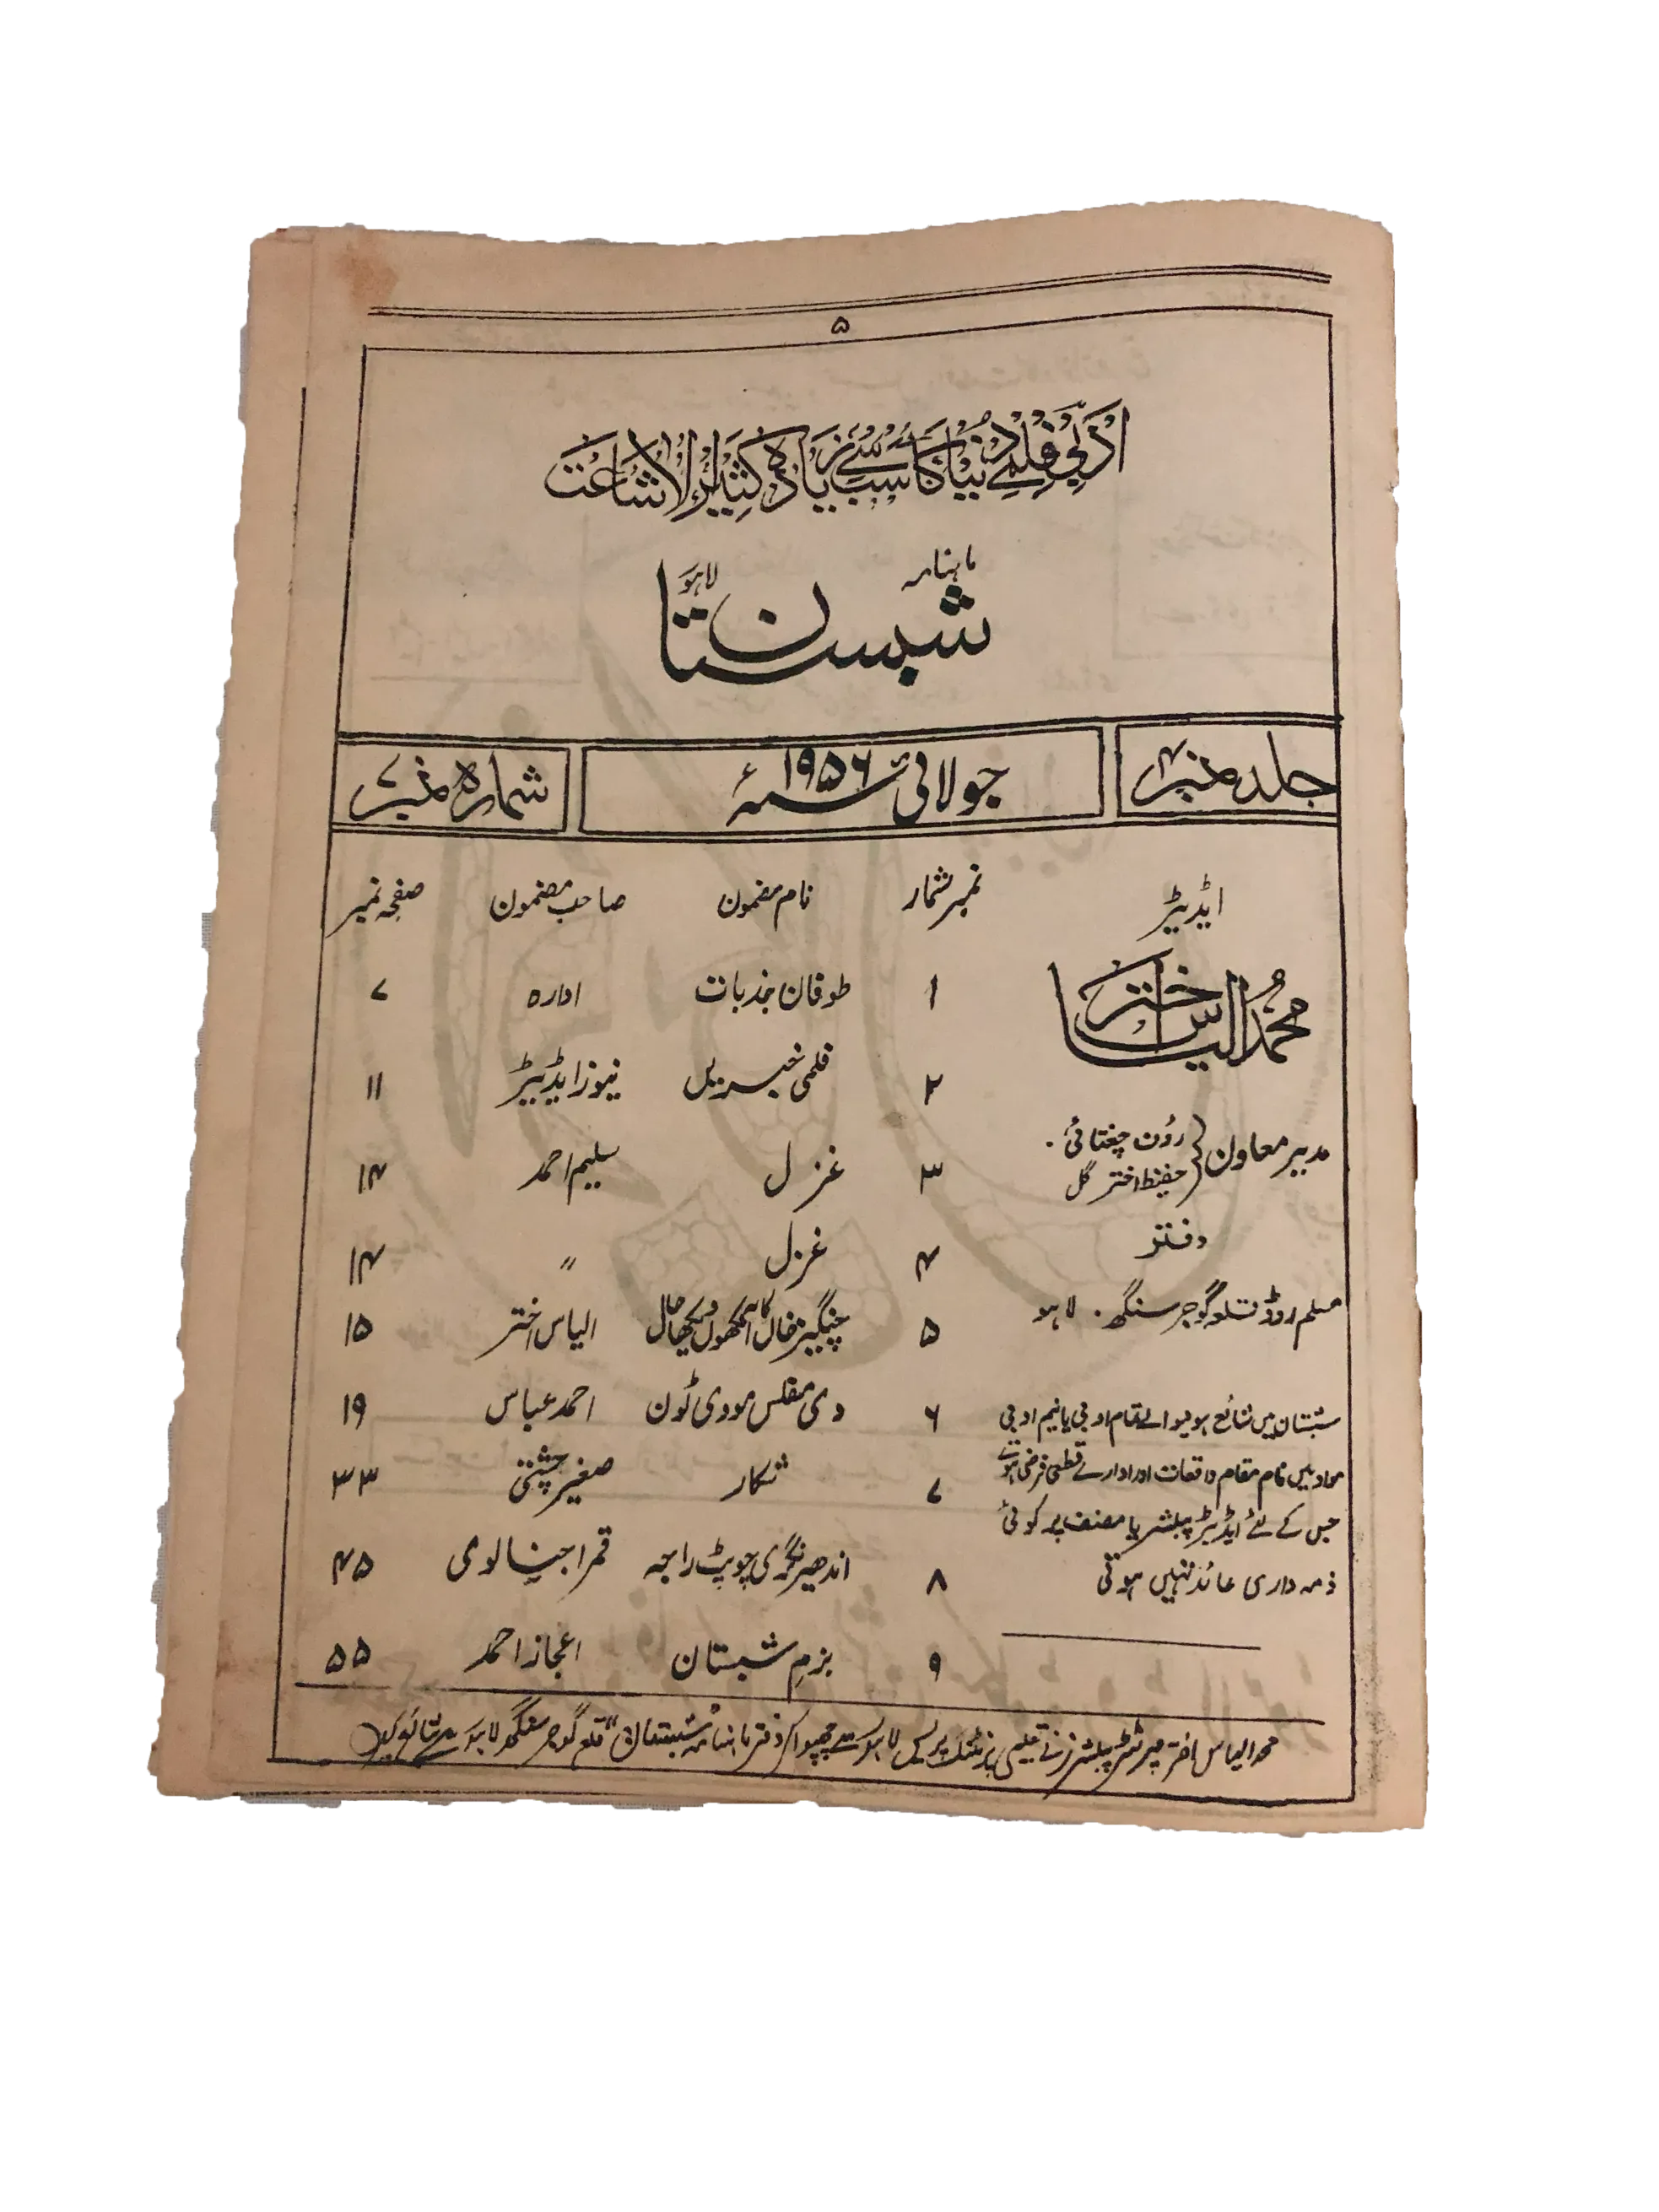 ۵
ادبی فلمی دنیا کا سب سے زیادہ کثیر الاشاعت
ماہنامہ شبستان لاہور
جلد نمبر ۴ جولائی ۱۹۵۶ء شمارہ نمبر ۷
ایڈیٹر
محمد الیاس اختر
مدیر معاون رؤف چغتائی
حفیظ اختر گل
دفتر
مسلم روڈ قلعہ گوجر سنگھ۔ لاہور
شبستان میں شائع ہونیوالے تمام ادبی یا نیم ادبی
مواد میں نام مقام واقعات اور ادارے قطعی فرضی ہوتے
جس کے لئے ایڈیٹر پبلشر یا مصنف پر کوئی
ذمہ داری عائد نہیں ہوتی
نمبر شمار نام مضمون صاحب مضمون صفحہ نمبر
۱ طوفان جذبات ادارہ ۷
۲ فلمی خبریں نیوز ایڈیٹر ۱۱
۳ غزل سلیم احمد ۱۴
۴ غزل 〃 ۱۴
۵ چنگیز خاں کا آنکھوں دیکھا حال الیاس اختر ۱۵
۶ دی مفلس مووی ٹون احمد عباس ۱۹
۷ شکار صغیر چشتی ۳۳
۸ اندھیر نگری چوپٹ راجہ قمر اجنالوی ۴۵
۹ بزم شبستان اعجاز احمد ۵۵
محمد الیاس اختر پرنٹر پبلشرز نے تعلیمی پرنٹنگ پریس لاہور سے چھپوا کر دفتر ماہنامہ "شبستان" قلعہ گوجر سنگھ لاہور سے شائع کیا